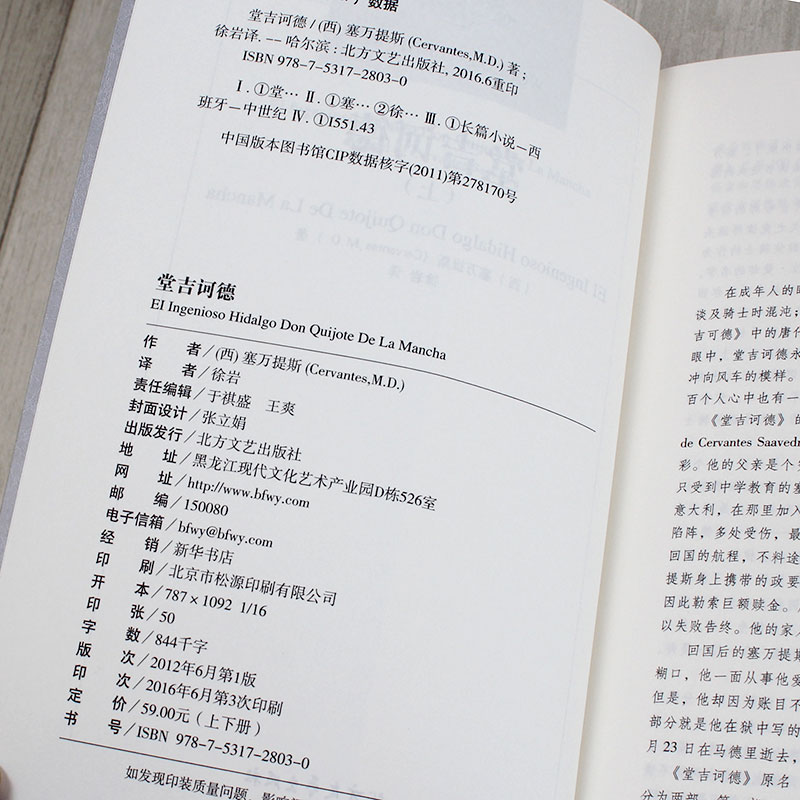 数据
堂吉诃德/(西)塞万提斯(Cervantes,M.D.)著;
徐岩译.--哈尔滨:北方文艺出版社,2016.6重印
ISBN 978-7-5317-2803-0
Ⅰ.①堂… Ⅱ.①塞…②徐… Ⅲ.①长篇小说-西
班牙-中世纪 Ⅳ.①I551.43
中国版本图书馆CIP数据核字(2011)第278170号
堂吉诃德
EI Ingenioso Hidalgo Don Quijote De La Mancha
作 者/(西)塞万提斯(Cervantes,M.D.)
译 者/徐岩
责任编辑/于祺盛 王爽
封面设计/张立娟
出版发行/北方文艺出版社
地 址/黑龙江现代文化艺术产业园D栋526室
网 址/http://www.bfwy.com
邮 编/150080
电子信箱/bfwy@bfwy.com
经 销/新华书店
印 刷/北京市松源印刷有限公司
开 本/787×1092 1/16
印 张/50
字 数/844千字
版 次/2012年6月第1版
印 次/2016年6月第3次印刷
定 价/59.00元(上下册)
书 号/ISBN 978-7-5317-2803-0
如发现印装质量问题,影响
在成年人的
谈及骑士时混沌;
吉可德》中的唐
眼中,堂吉诃德永
冲向风车的模样。
百个人心中也有一
《堂吉诃德》的
de Cervantes Saavedr
彩。他的父亲是个
只受到中学教育的塞
意大利,在那里加入
陷阵,多处受伤,最
回国的航程,不料途
提斯身上携带的政要
因此勒索巨额赎金。
以失败告终。他的家
回国后的塞万提斯
糊口,他一面从事他
但是,他却因为账目不
部分就是他在狱中写的
月23日在马德里逝去,
《堂吉诃德》原名
分为两部,第一